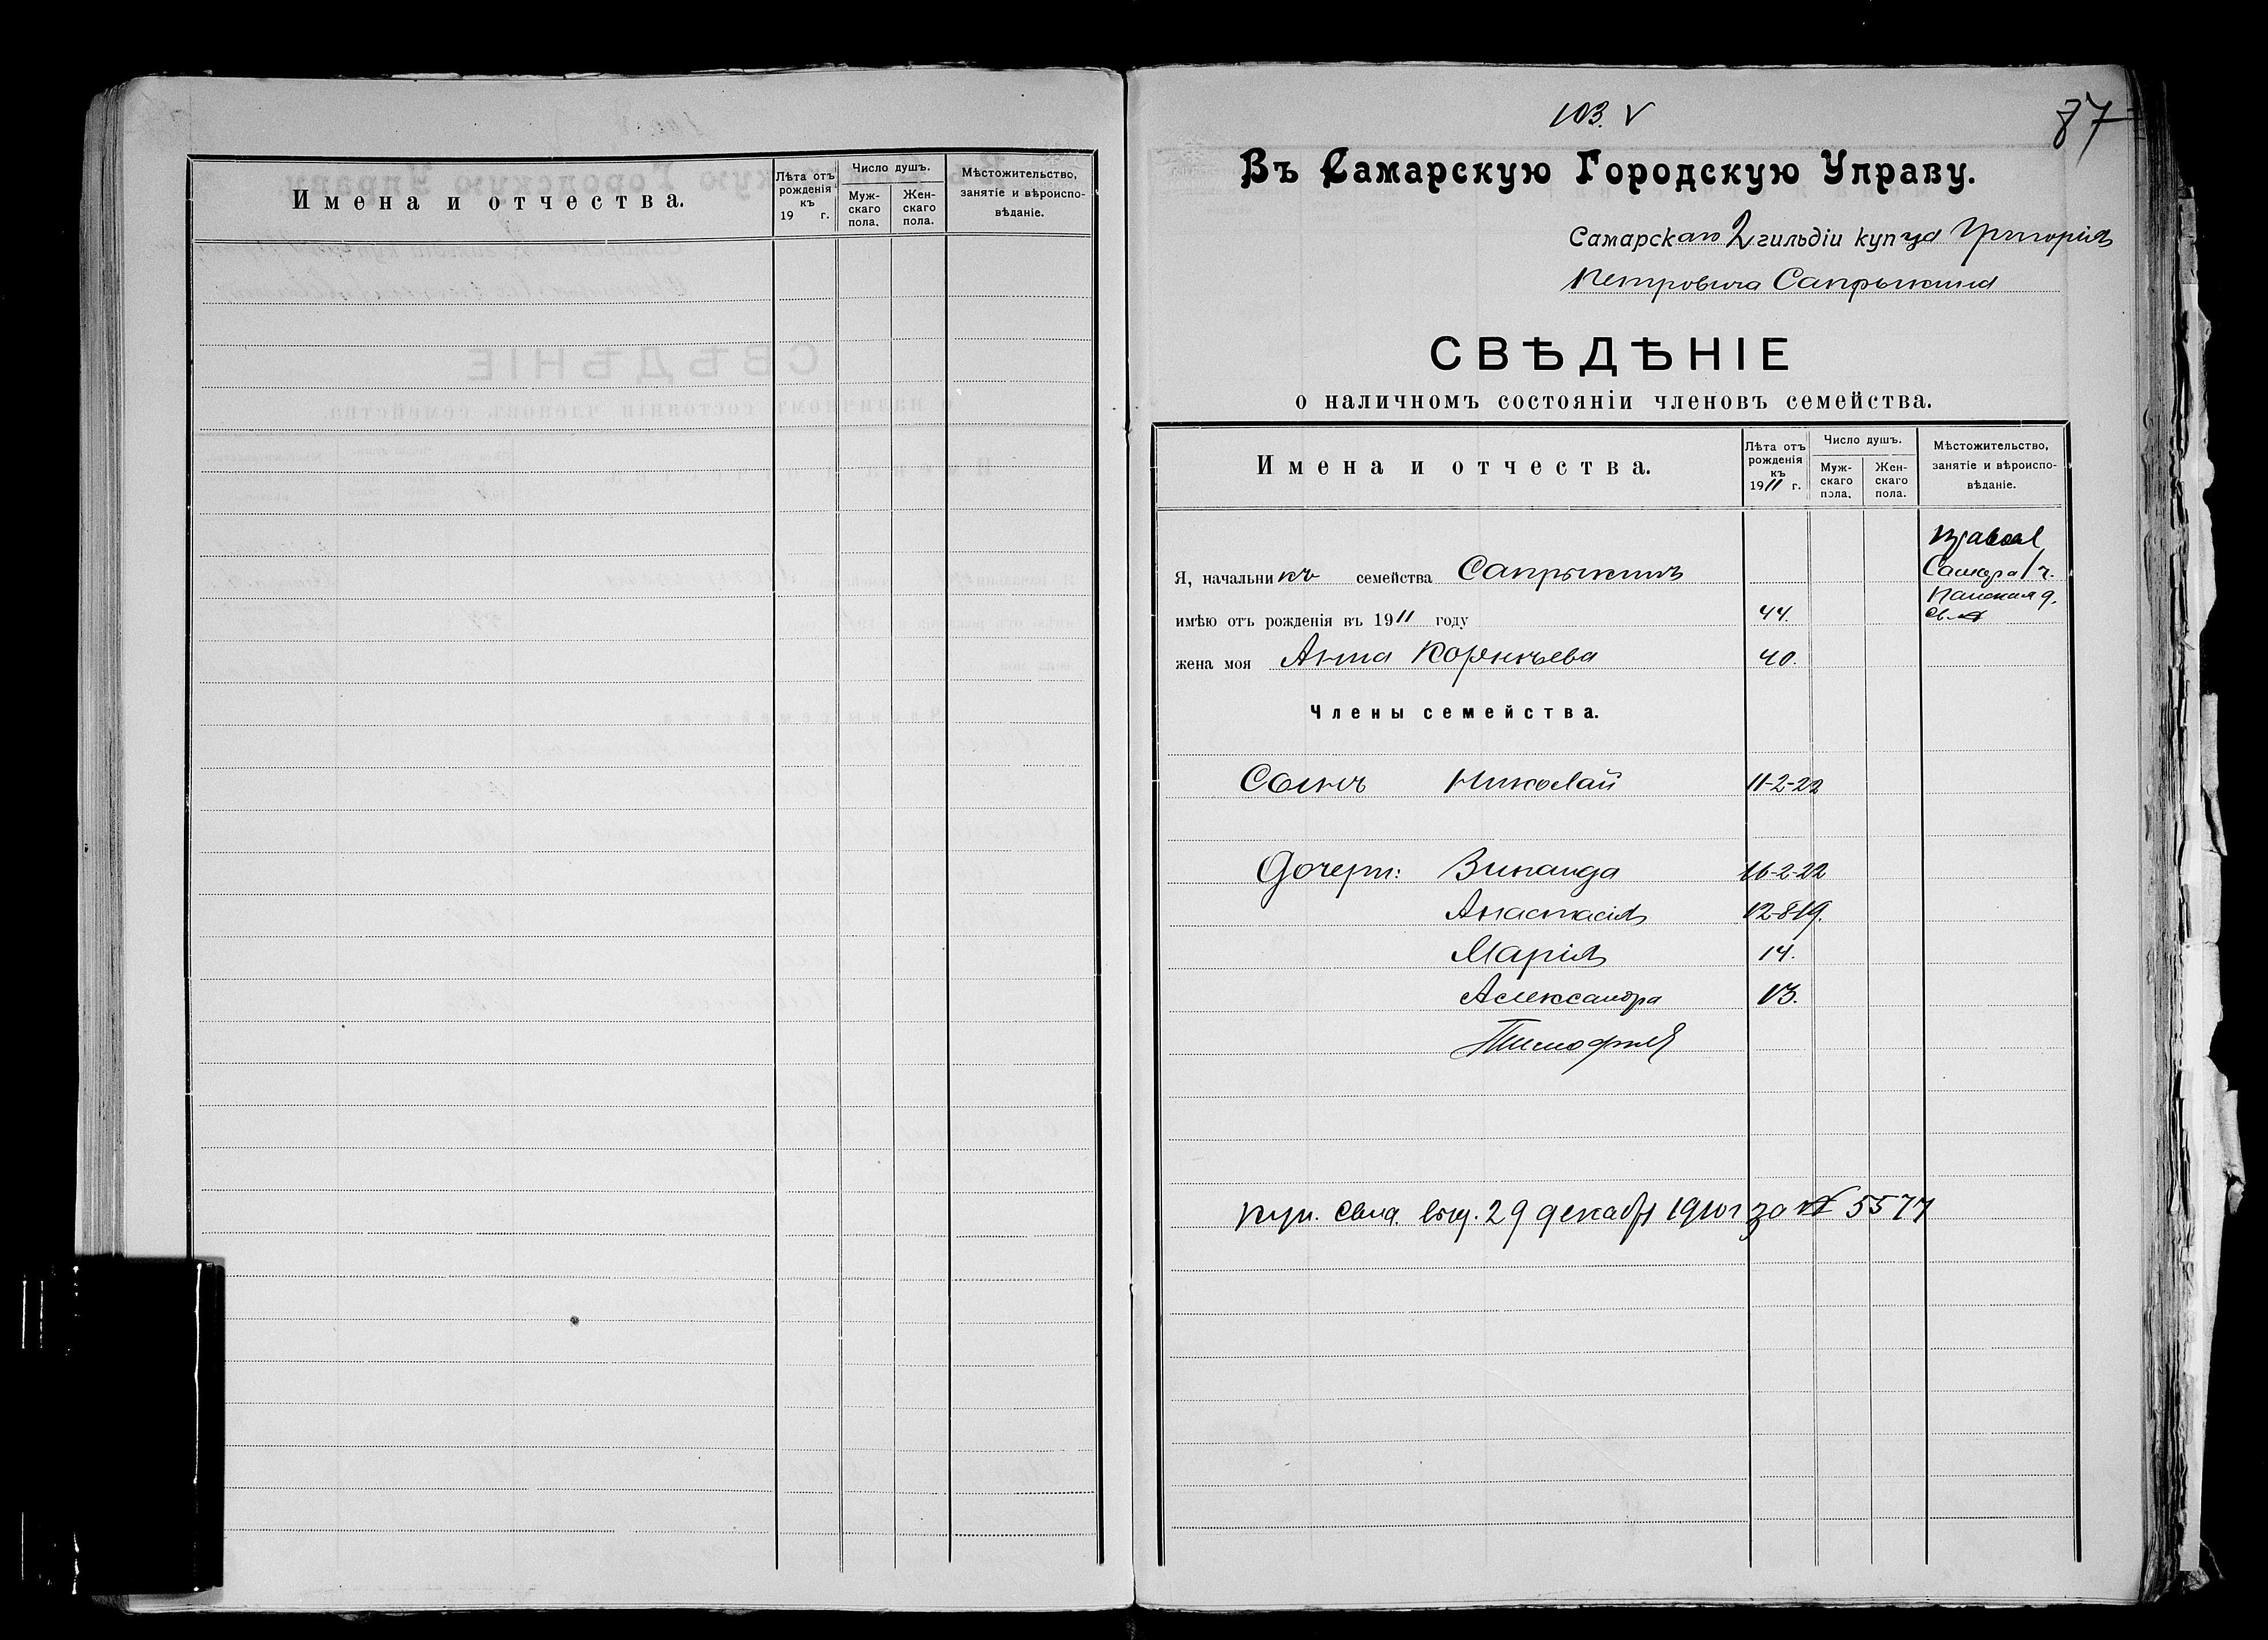 Имена и отчества.
Лѣта отъ рожденія къ 19 г.
Число душъ.
Муж-скаго пола.
Жен-скаго пола.
Мѣстожительство, занятіе и вѣроиспо-вѣданіе.
103. V
87
Въ Самарскую Городскую Управу.
Самарскаго 2 гильдіи купца Григорія
Петровича Сапрыкина
СВѢДѢНІЕ
о наличномъ состояніи членовъ семейства.
Имена и отчества.
Лѣта отъ рожденія къ 1911 г.
Число душъ.
Муж-скаго пола.
Жен-скаго пола.
Мѣстожительство, занятіе и вѣроиспо-вѣданіе.
Правосл
Я, начальникъ семейства Сапрыкинъ
Самара 1 ч.
имѣю отъ рожденія въ 1911 году 44.
жена моя Анна 40.
Члены семейства.
Сынъ Николай 11-2-22
Дочери: Зинаида 16-2-22
Анастасія 12-8-19.
Марія 14.
Александра 13.
Куп. свид. выд. 29 декабр 1910 г за № 5577